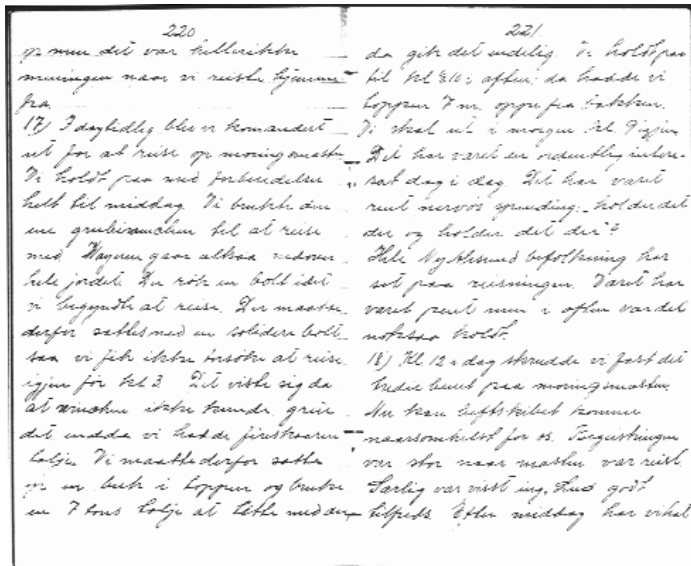 220
op men det var hellerikke
meningen naar vi reiste hjemme
fra.
17) I dag tidlig blev vi komandert
ut for at reise op moringsmasten
Vi holdt paa med forberedelser
helt til middag. Vi brukte den
ene grubewinchen til at reise
med. Wayeren gaar altsaa nedover
hele jordet. Der rök en bolt idet
vi begyndte at reise. Der maatte
derfor sættes ned en solidere bolt
saa vi fik ikke forsöke at reise
igjen for kl 3. Det viste sig da
at winchen ikke kunde greie
det endda vi hadde fireskaaren
talje. Vi maatte derfor sætte
op en buk i toppen og bruke
en 7 tons talje at lette med den
221.
da gik det endelig. Vi holdt paa
til kl 8.10 i aften; da hadde vi
toppen 7 m. oppe fra bakken.
Vi skal ut i morgen kl. 9 igjen
Det har været en ordentlig interes-
sat dag i dag. Det har været
rent nervös spænding: holder det
der og holder det der?
Hele Ny Aalesund befolkning har
set paa reisningen. Været har
været pent men i aften var det
noksaa koldt.
18) Kl 12 i dag skrudde vi fast det
tredie benet paa moringsmasten.
Nu kan luftskibet komme
naarsomhelst for os. Begeistringen
var stor naar masten var reist.
Særlig var visst ing. Lund godt
tilfreds. Efter middag har vi hat